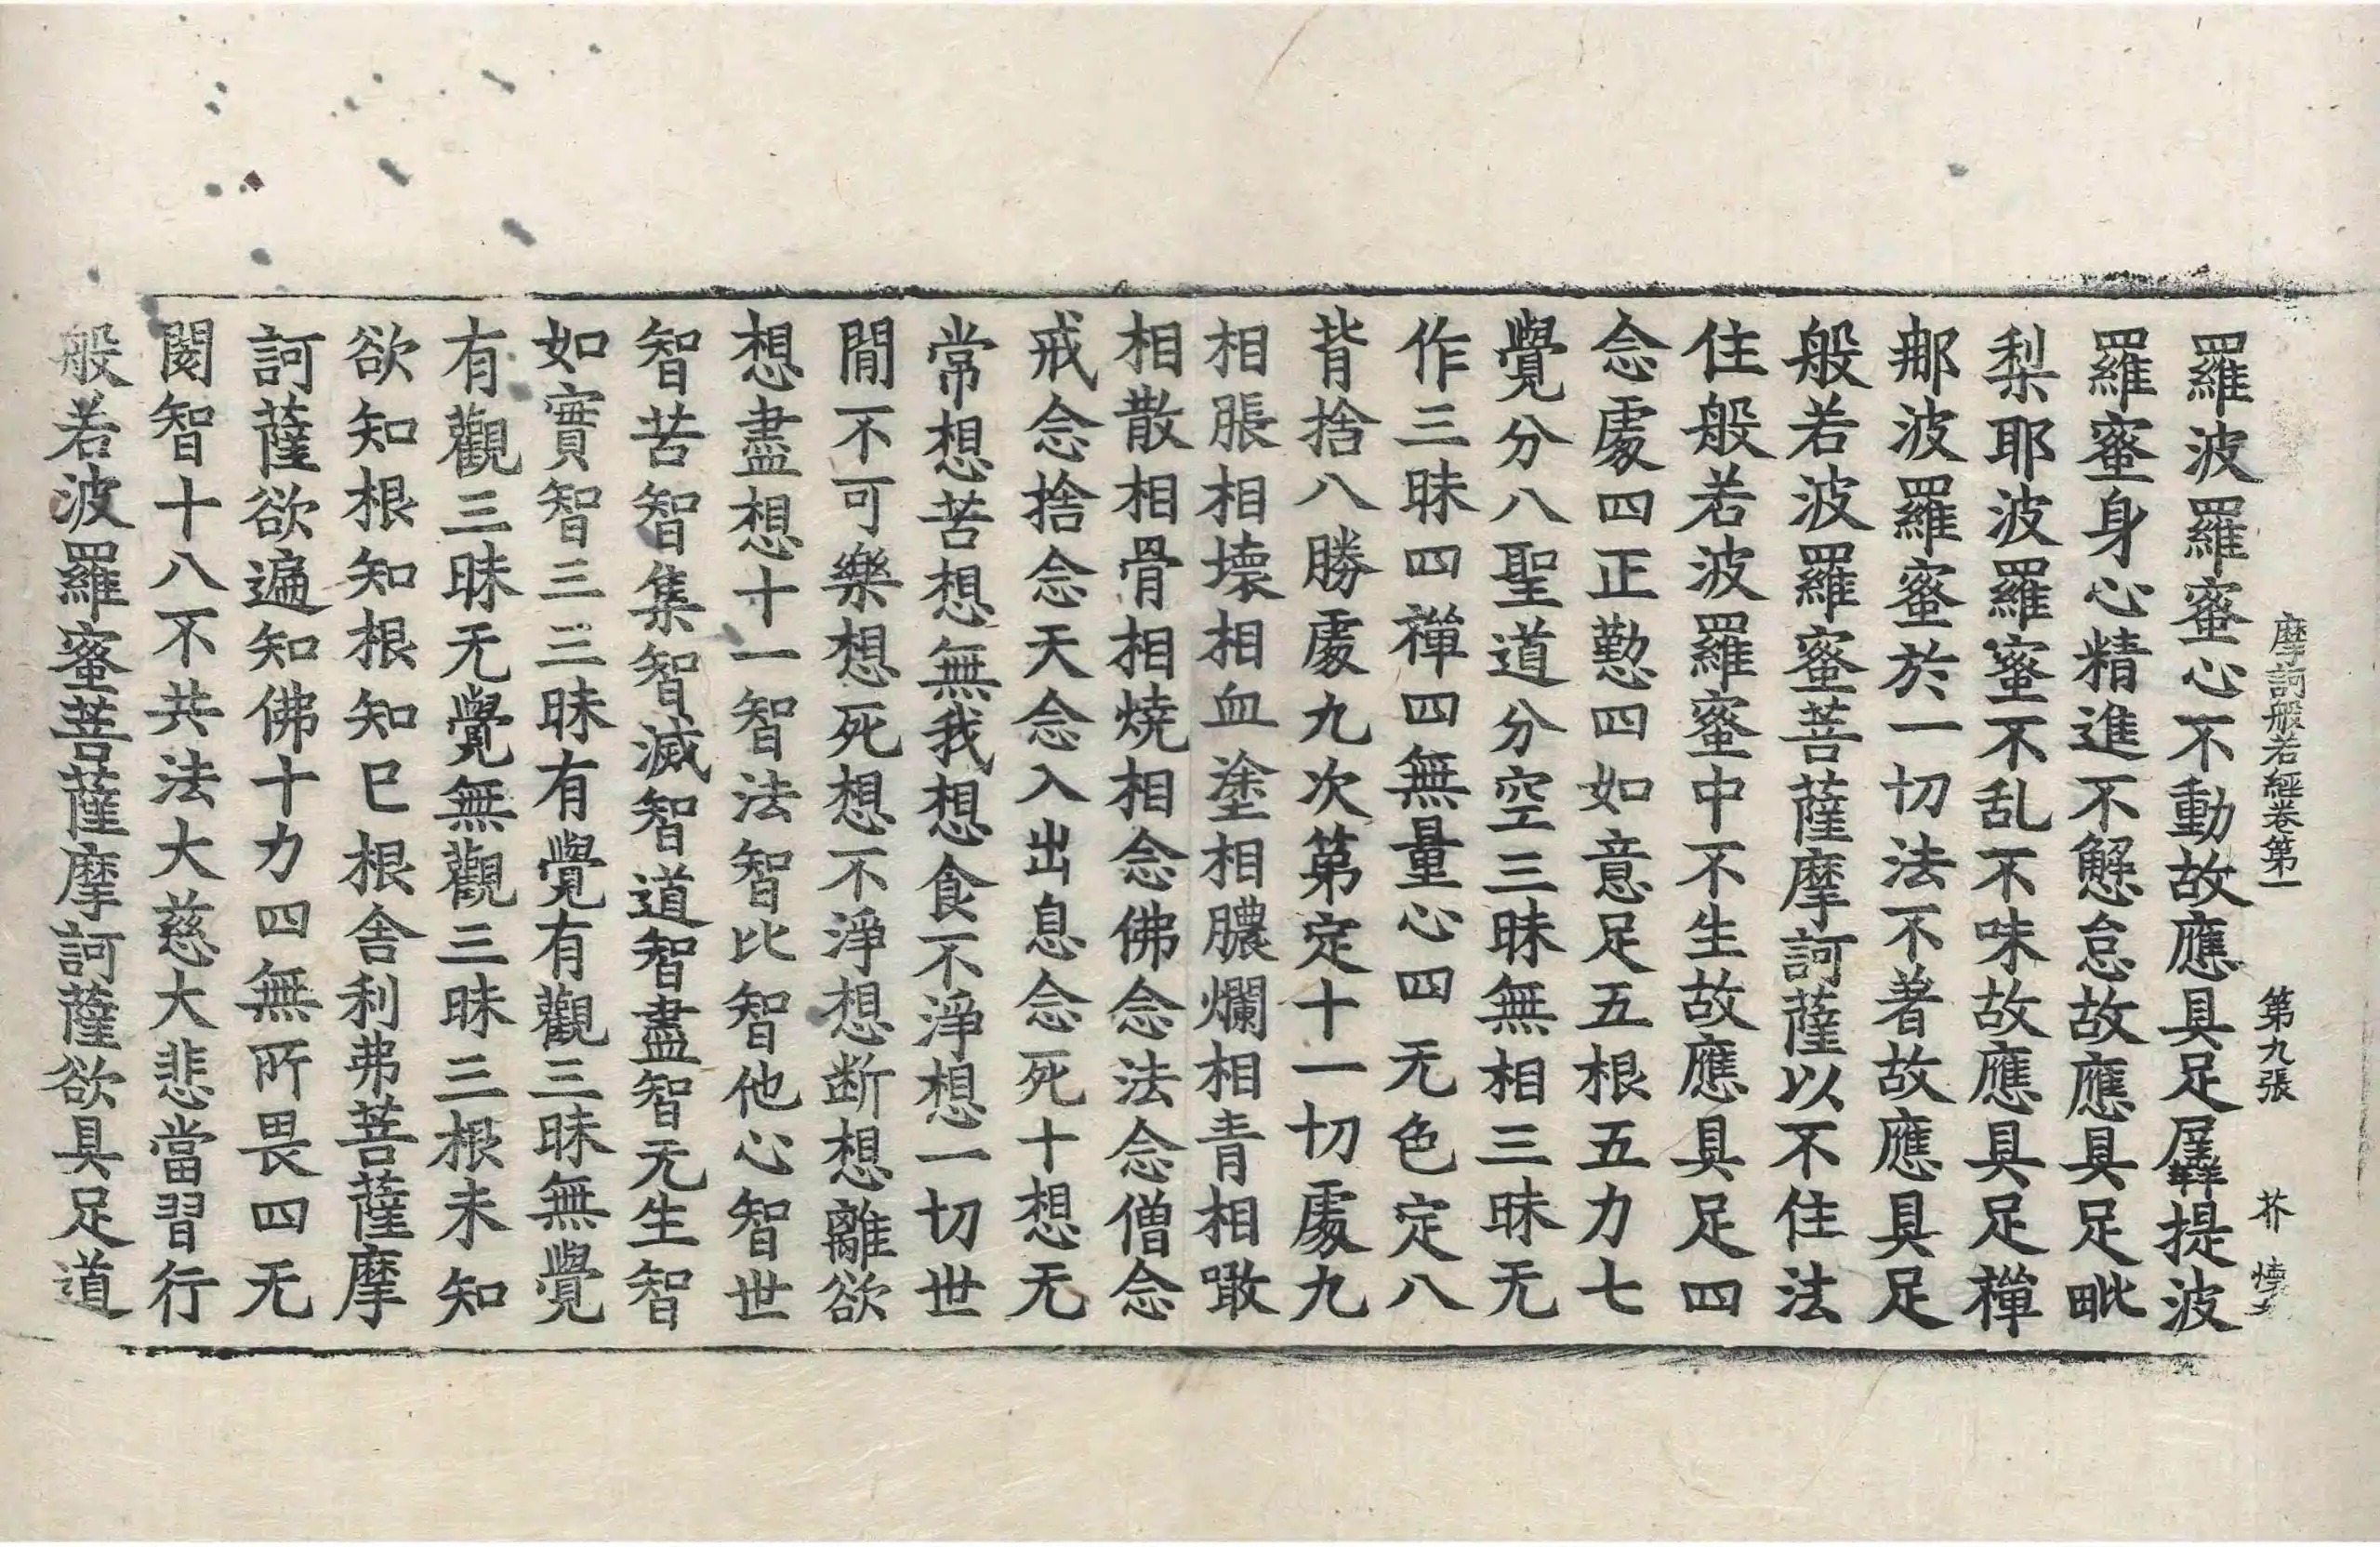 摩訶般若經卷第一 第九張 芥
羅波羅蜜心不動故應具足羼提波
羅蜜身心精進不懈怠故應具足毗
梨耶波羅蜜不乱不味故應具足禪
那波羅蜜於一切法不著故應具足
般若波羅蜜菩薩摩訶薩以不住法
住般若波羅蜜中不生故應具足四
念處四正懃四如意足五根五力七
覺分八聖道分空三昧無相三昧无
作三昧四禪四無量心四无色定八
背捨八勝處九次第定十一切處九
相脹相壞相血塗相膿爛相青相噉
相散相骨相燒相念佛念法念僧念
戒念捨念天念入出息念死十想无
常想苦想無我想食不淨想一切世
間不可樂想死想不淨想断想離欲
想盡想十一智法智比智他心智世
智苦智集智滅智道智盡智无生智
如實智三三昧有覺有觀三昧無覺
有觀三昧无覺無觀三昧三根未知
欲知根知根知已根舍利弗菩薩摩
訶薩欲遍知佛十力四無所畏四无
閡智十八不共法大慈大悲當習行
般若波羅蜜菩薩摩訶薩欲具足道